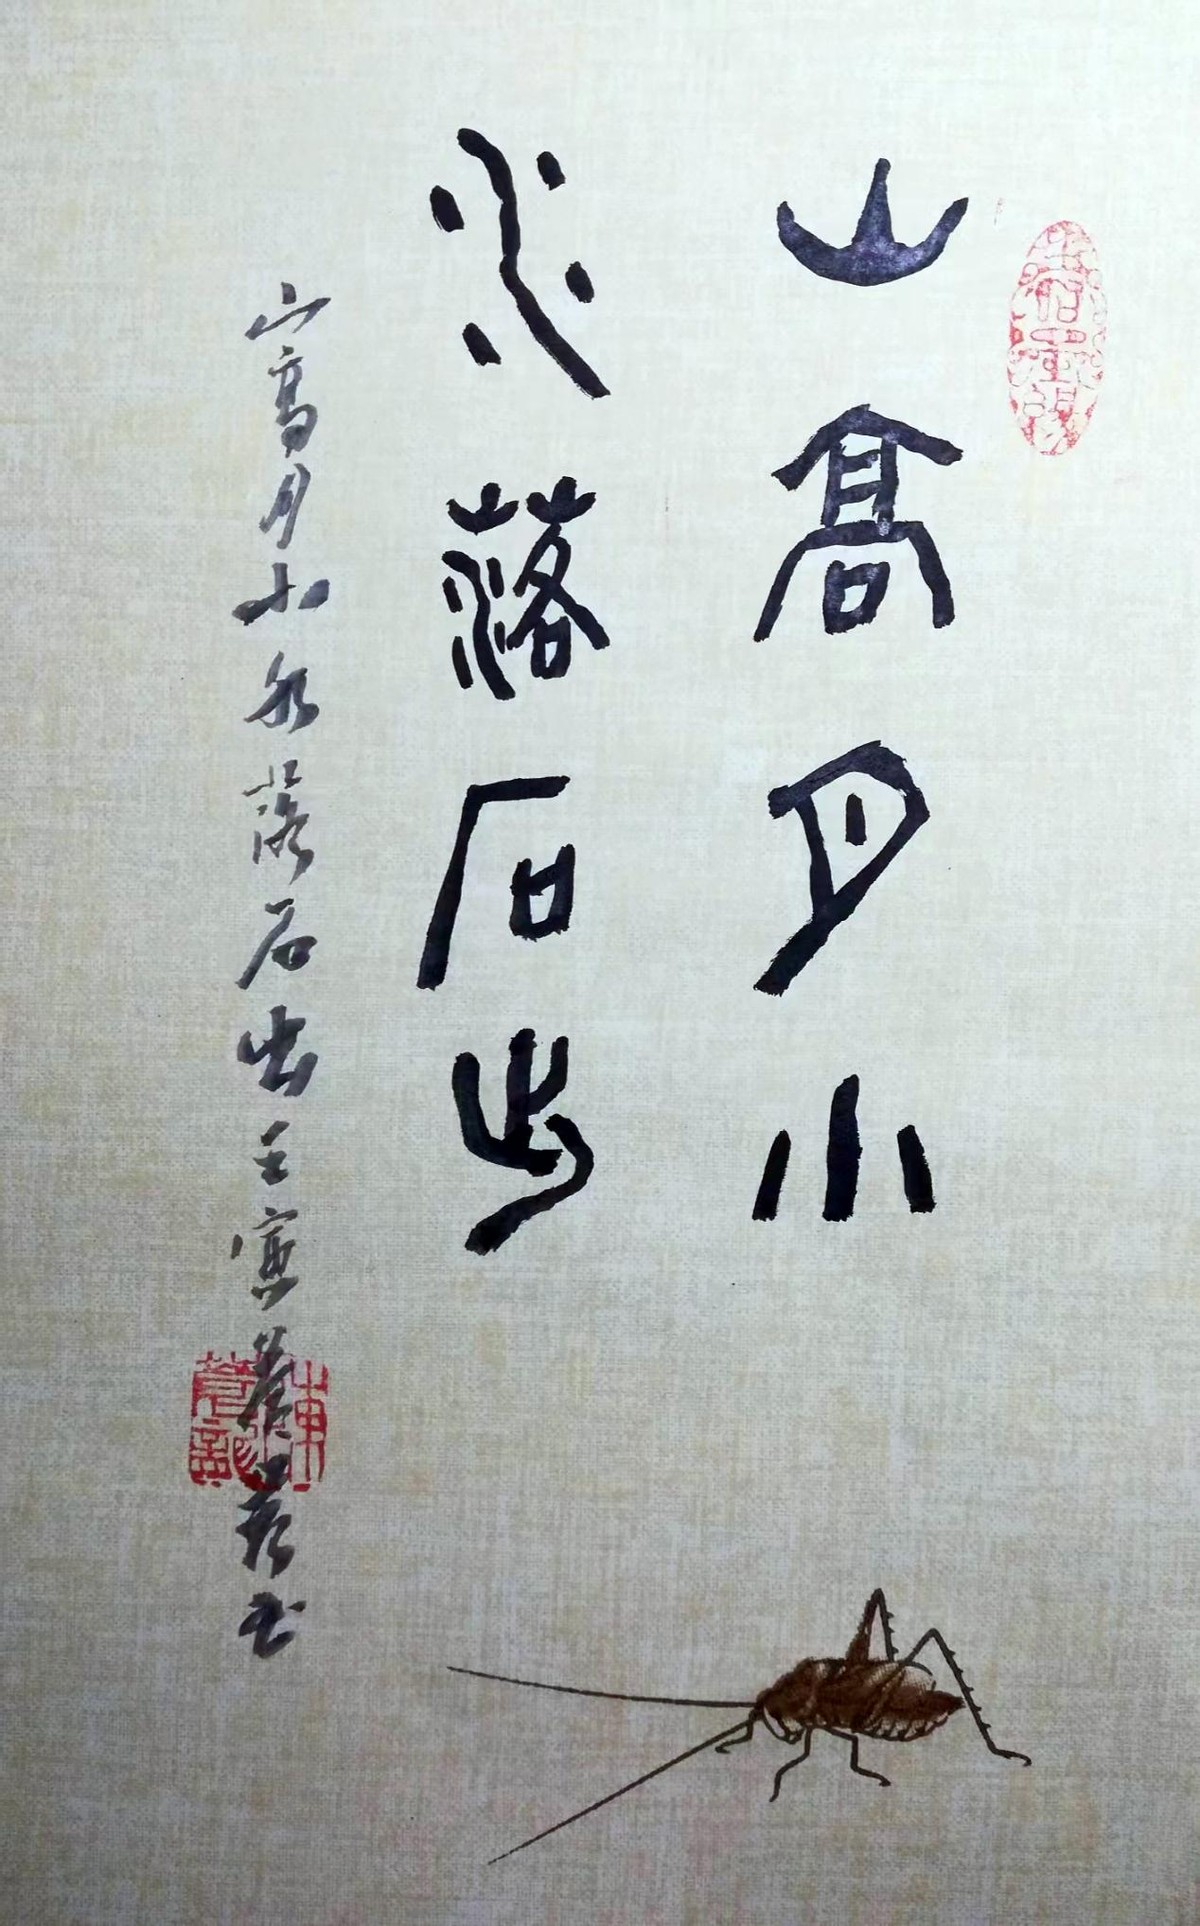 山高月小
水落石出
山高月小水落石出壬寅